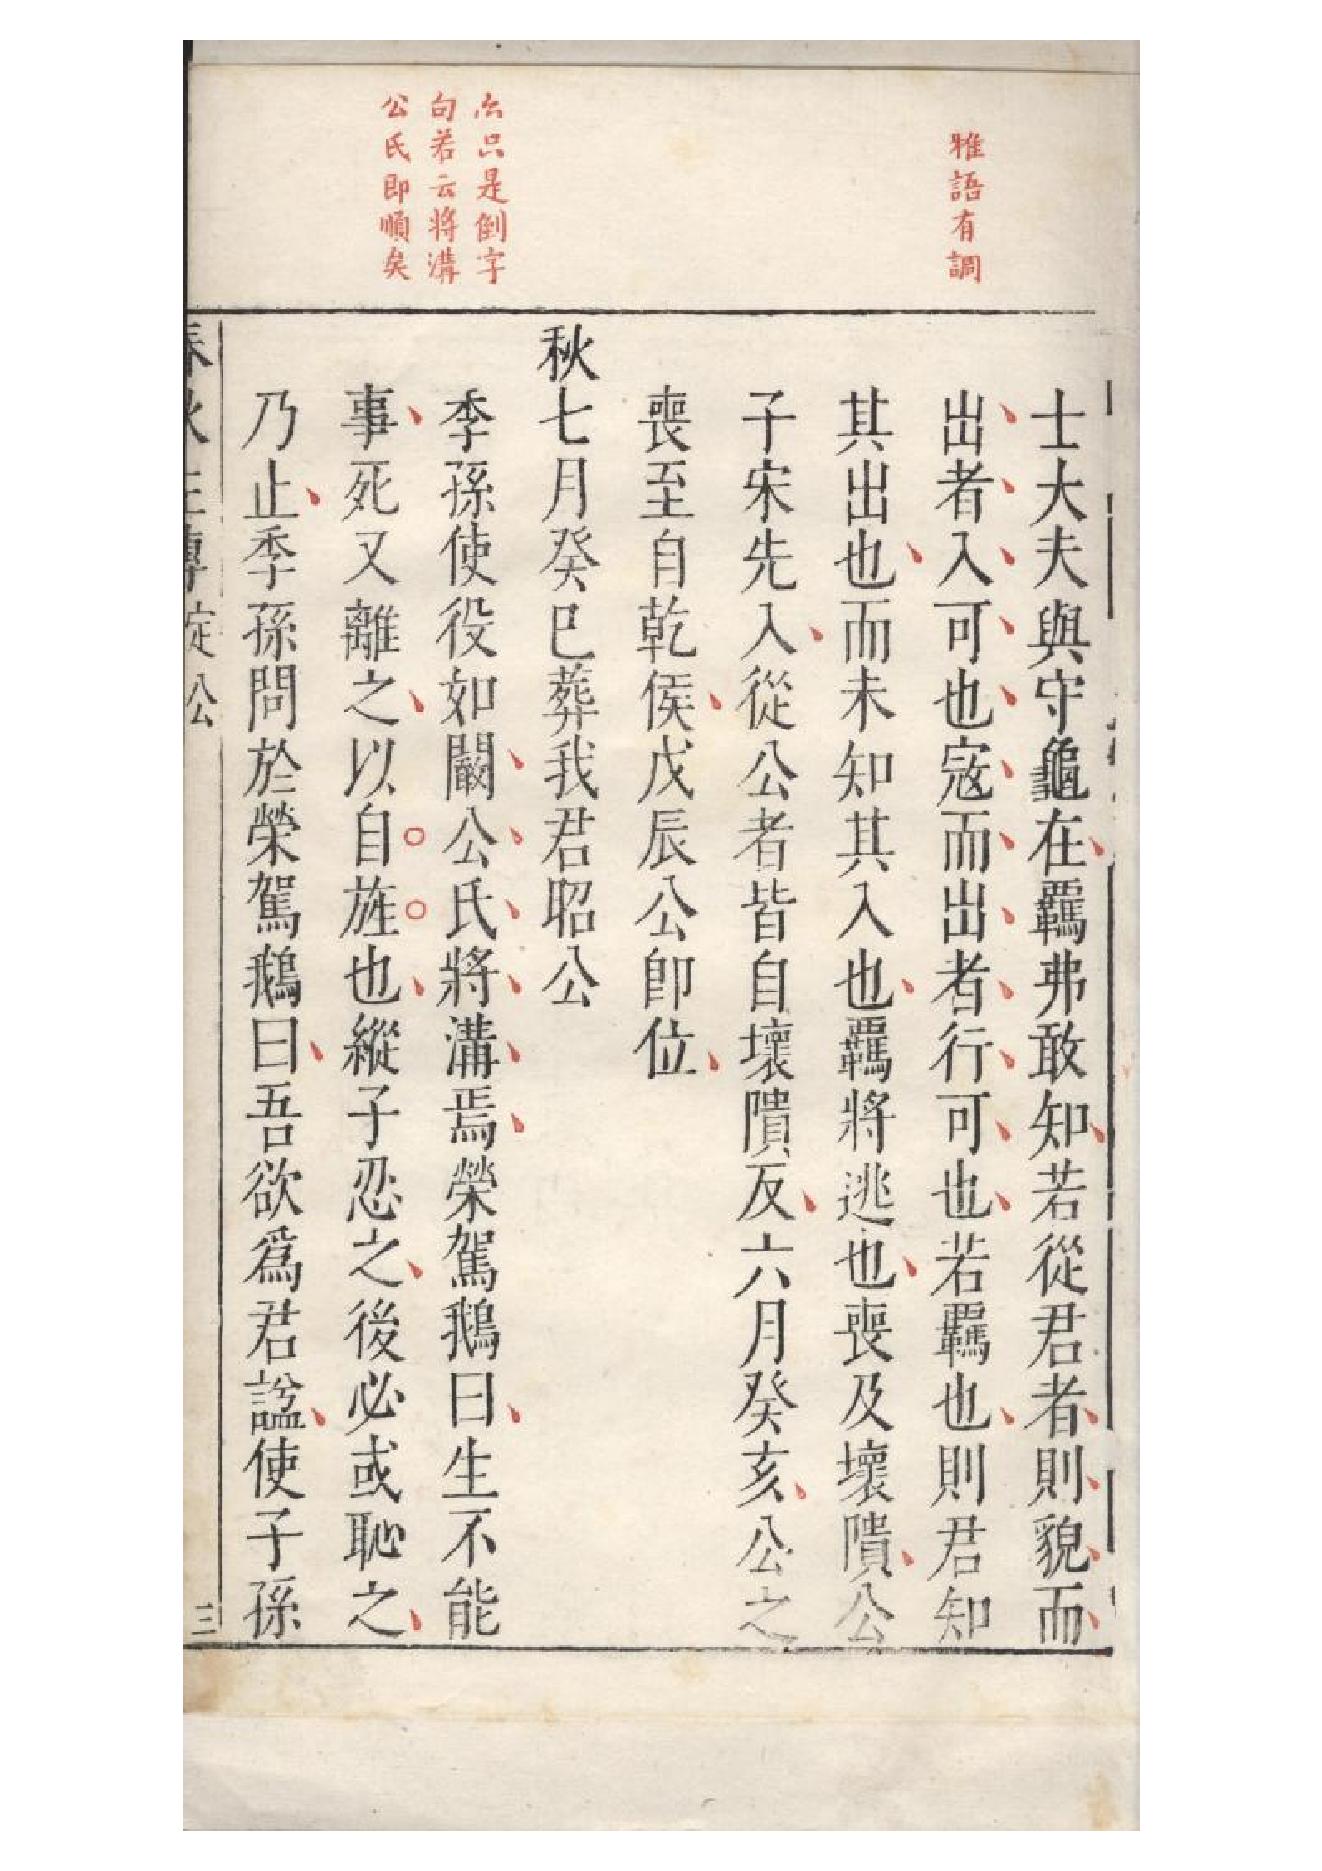 雅語有調
士大夫與守龜在羈弗敢知若從君者則貌而
出者入可也寇而出者行可也若羈也則君知
其出也而未知其入也羈將逃也喪及壞隤公
子宋先入從公者皆自壞隤反六月癸亥公之
喪至自乾侯戊辰公即位
秋七月癸巳葬我君昭公
只是倒字
句若云將溝
公氏即順矣
季孫使役如闞公氏將溝焉榮駕鵝曰生不能
事死又離之以自旌也縱子忍之後必或恥之
乃止季孫問於榮駕鵝曰吾欲爲君諡使子孫
春秋左傳定公
三